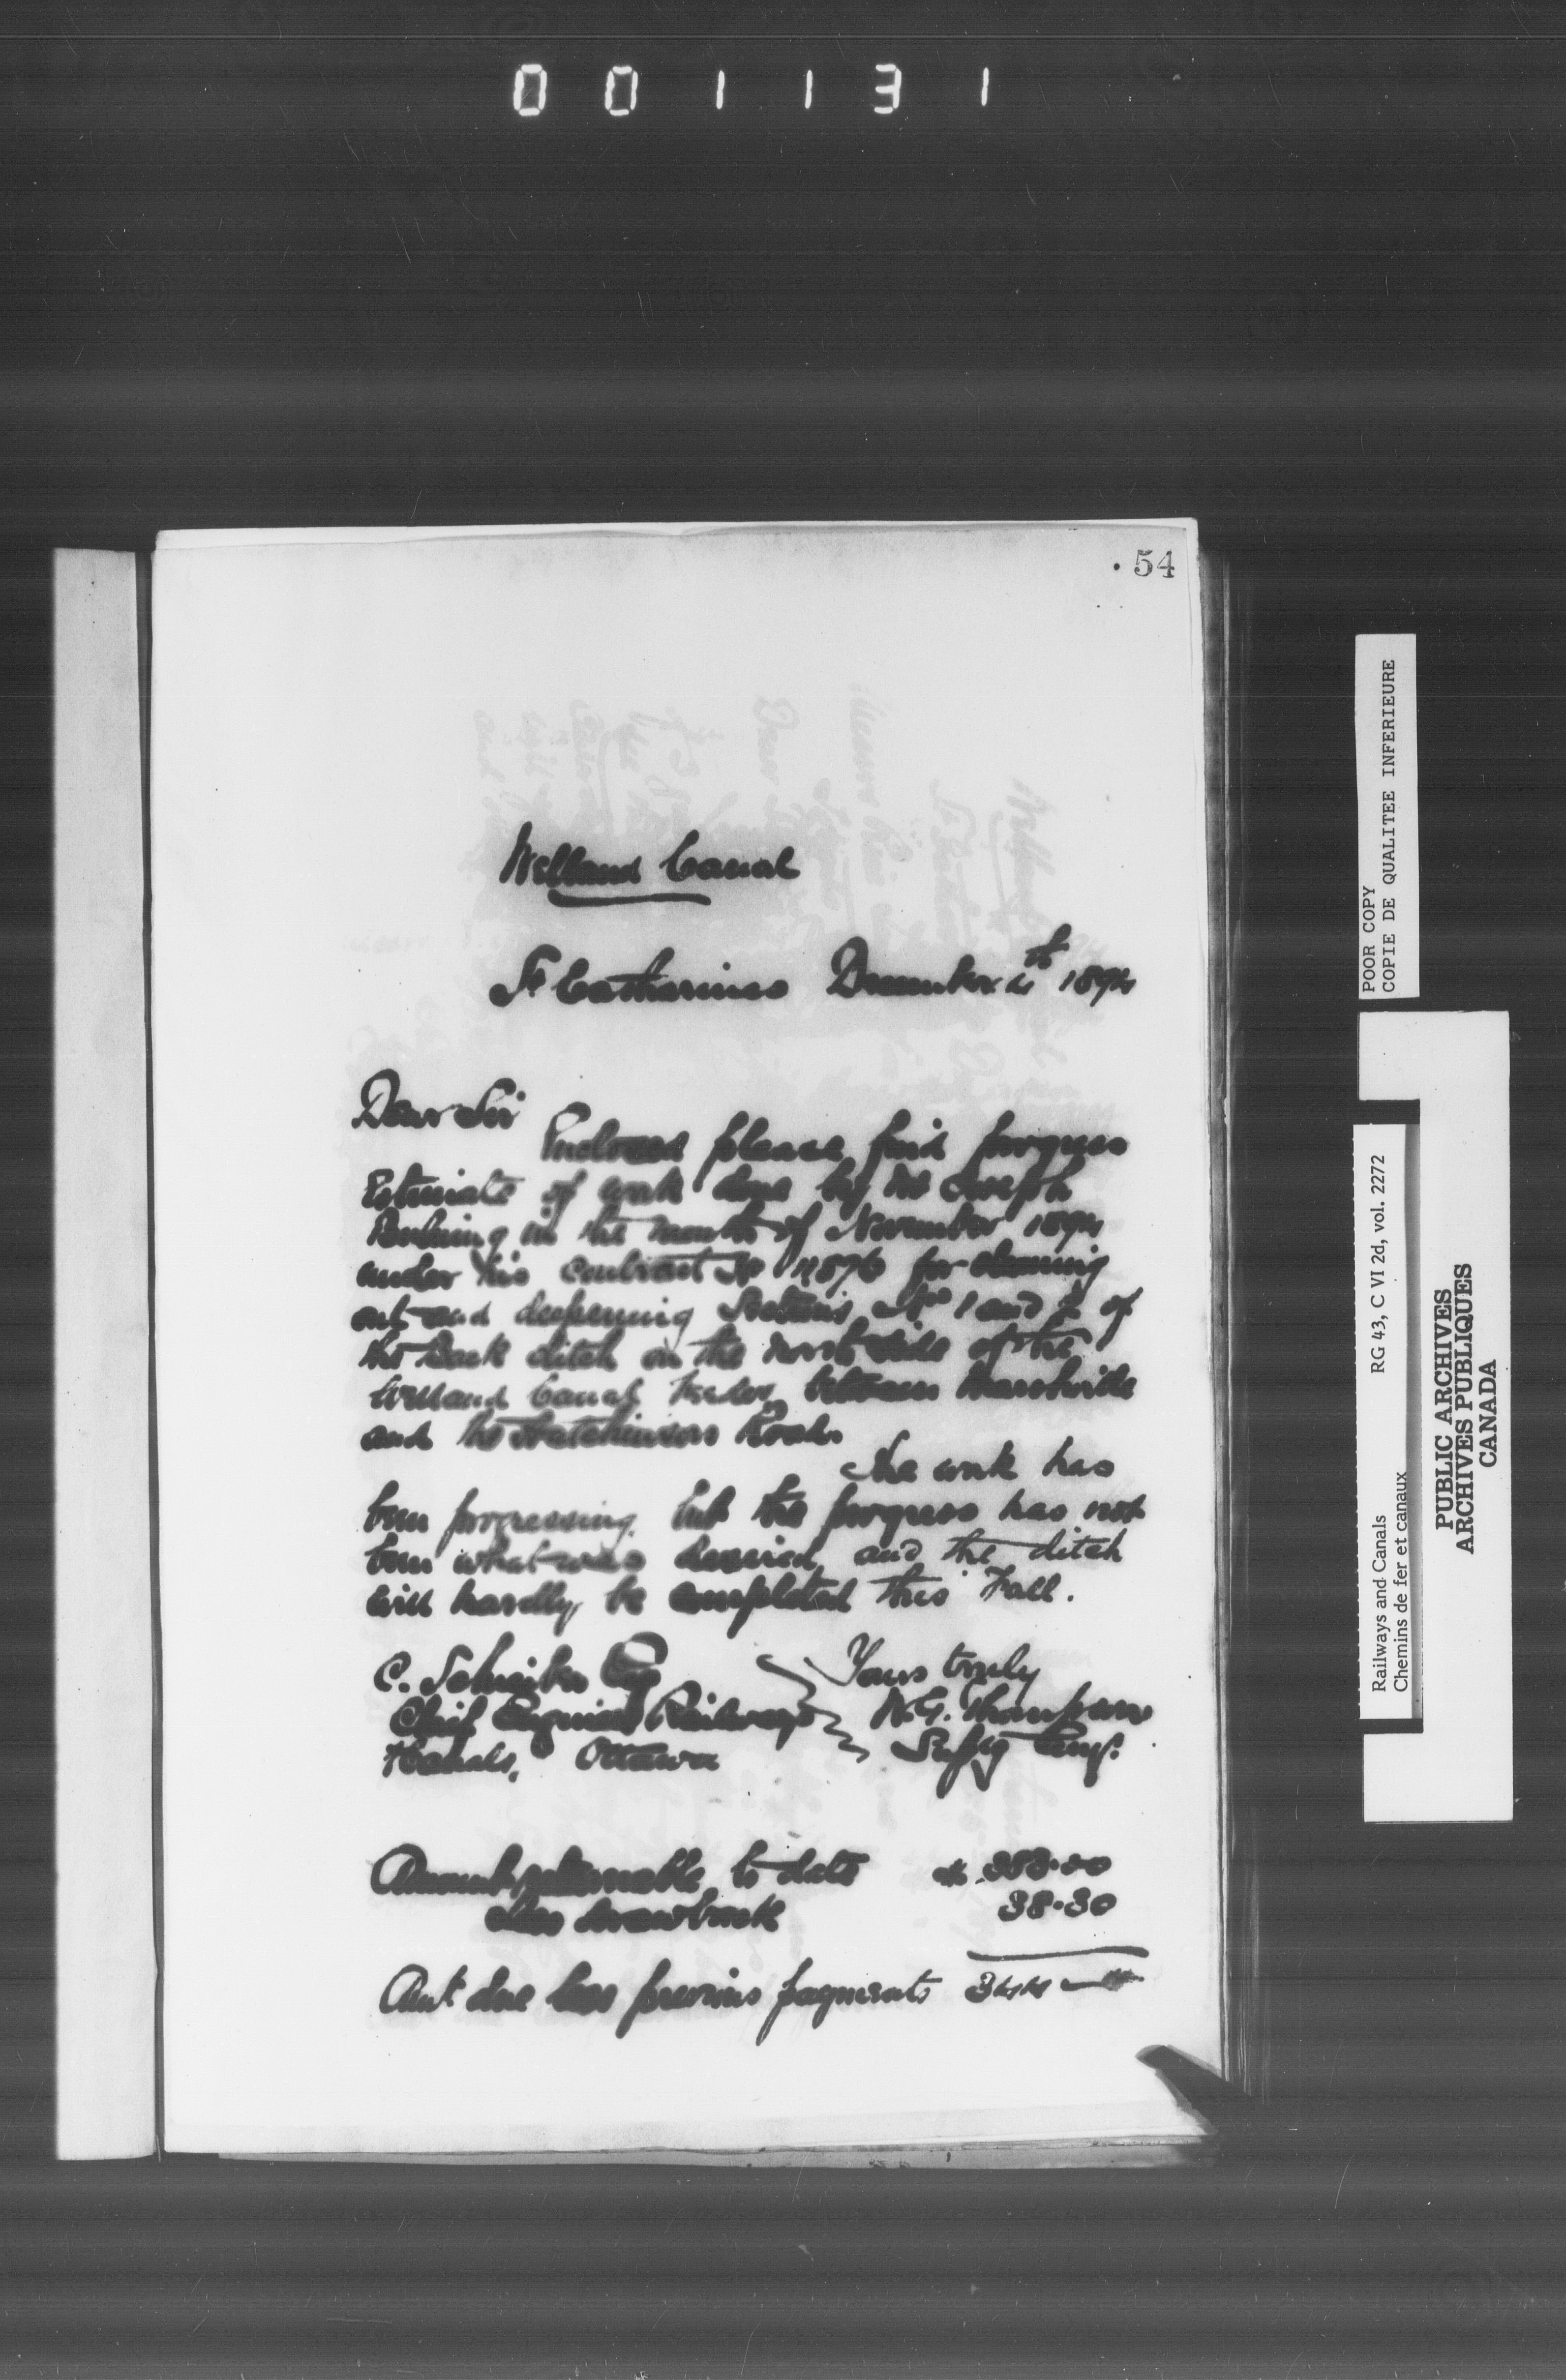 001131
54
Welland Canal
St Catharines December 4th 1894
Dear Sir
Enclosed please find progress
Estimate of work done by Mr Joseph
in the month of November 1894
under his contract No 11876 for cleaning
out and deepening Sections Nos 1 and 2 of
the Back ditch on the North side of the
Welland Canal Feeder, between Marshville
and the Hutchinson Road.
The work has
been progressing, but the progress has not
been what was desired, and the ditch
will hardly be completed this Fall.
C. Schreiber Esq
Chief Engineer Railways
&Canals, Ottawa
Yours truly
W.G. Thompson
Suptg Eng.
Amount returnable to date $ 383.00
Less drawback 38.30
Amt due less previous payments 344
POOR COPY
COPIE DE QUALITEE INFERIEURE
Railways and Canals RG 43, C VI 2d, vol. 2272
Chemins de fer et canaux
PUBLIC ARCHIVES
ARCHIVES PUBLIQUES
CANADA